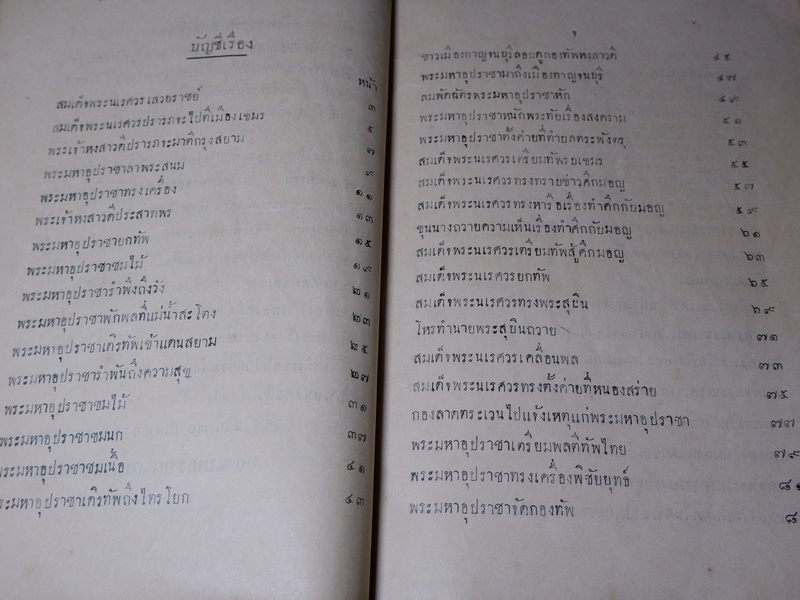 บัญชีเรื่อง
หน้า
สมเด็จพระนเรศวรเสวยราชย์ ๓
สมเด็จพระนเรศวรปรารภจะไปตีเมืองเขมร ๕
พระเจ้าหงสาวดีปรารภจะมาตีกรุงสยาม ๗
พระมหาอุปราชาลาพระสนม ๙
พระมหาอุปราชาทรงเครื่อง ๑๑
พระเจ้าหงสาวดีประสาทพร ๑๓
พระมหาอุปราชายกทัพ ๑๕
พระมหาอุปราชาชมไม้ ๑๙
พระมหาอุปราชารำพึงถึงวัง ๒๑
พระมหาอุปราชาพักพลที่แม่น้ำสะโตง ๒๓
พระมหาอุปราชาเดิรทัพเข้าแดนสยาม ๒๕
พระมหาอุปราชารำพันถึงความสุข ๒๗
พระมหาอุปราชาชมไม้ ๓๑
พระมหาอุปราชาชมนก ๓๗
พระมหาอุปราชาชมเนื้อ ๔๑
พระมหาอุปราชาเดิรทัพถึงไทรโยก ๔๓
ชาวเมืองกาญจนบุรีลอบดูกองทัพหงสาวดี ๔๕
พระมหาอุปราชามาถึงเมืองกาญจนบุรี ๔๗
ลมพัดฉัตรพระมหาอุปราชาหัก ๔๙
พระมหาอุปราชาหนักพระทัยเรื่องสงคราม ๕๑
พระมหาอุปราชาตั้งค่ายที่ตำบลตระพังตรุ ๕๓
สมเด็จพระนเรศวรเตรียมทัพรบเขมร ๕๕
สมเด็จพระนเรศวรทรงทราบข่าวศึกมอญ ๕๗
สมเด็จพระนเรศวรทรงหารือเรื่องทำศึกกับมอญ ๕๙
ขุนนางถวายความเห็นเรื่องทำศึกกับมอญ ๖๑
สมเด็จพระนเรศวรเตรียมทัพสู้ศึกมอญ ๖๓
สมเด็จพระนเรศวรยกทัพ ๖๕
สมเด็จพระนเรศวรทรงพระสุบิน ๖๙
โหรทำนายพระสุบินถวาย ๗๑
สมเด็จพระนเรศวรเคลื่อนพล ๗๓
สมเด็จพระนเรศวรทรงตั้งค่ายที่หนองสร่าย ๗๕
กองลาดตระเวนไปแจ้งเหตุแก่พระมหาอุปราชา ๗๗
พระมหาอุปราชาเตรียมพลตีทัพไทย ๗๙
พระมหาอุปราชาทรงเครื่องพิชัยยุทธ์ ๘๑
พระมหาอุปราชาจัดกองทัพ ๘